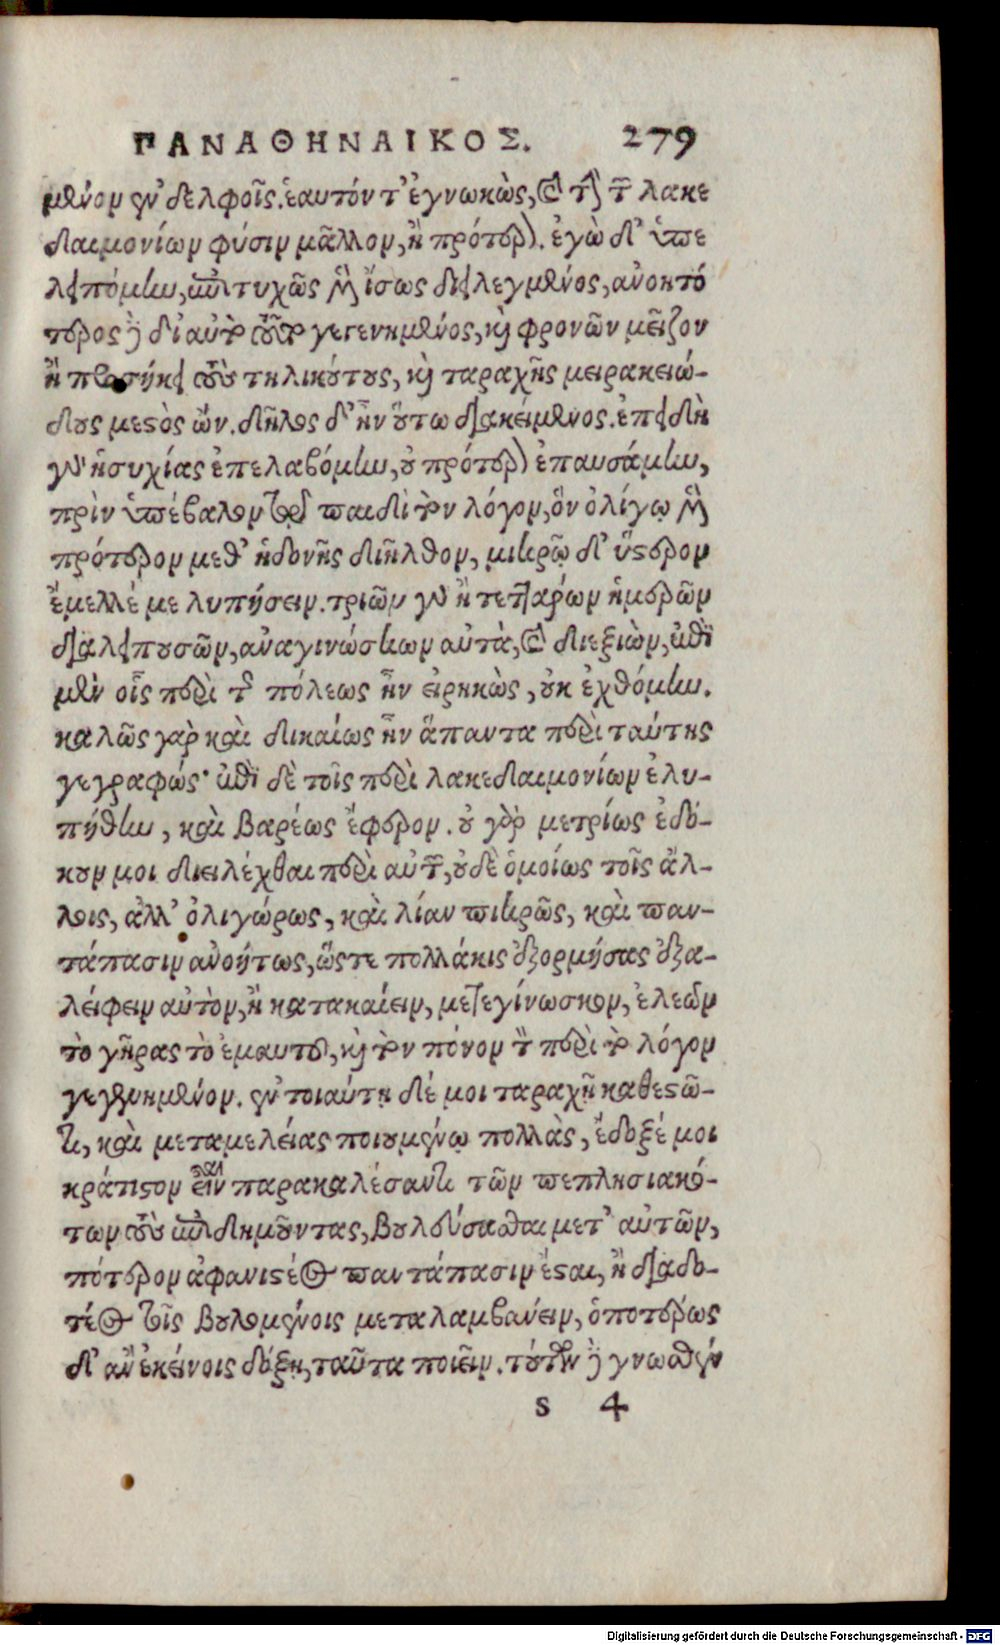 ΠΑΝΑΘΗΝΑΙΚΟΣ. 279
μένον ἐν δελφοῖς. ἑαυτόν τ' ἐγνωκὼς, καὶ τὴν τῶν λακε
δαιμονίων φύσιν μᾶλλον, ἢ πρότερον. ἐγὼ δ' ὑπε
λειπόμην, ἐπιτυχῶς μὲν ἴσως διειλεγμένος, ἀνοητό
τερος δὲ δι' αὐτὸ τοῦτο γεγενημένος, καὶ φρονῶν μεῖζον
ἢ προσήκει τοὺς τηλικούτους, καὶ ταραχῆς μειρακιώ-
δους μεστὸς ὤν. δῆλος δ' ἦν οὕτω διακείμενος. ἐπειδὴ
γὰρ ἡσυχίας ἐπελαβόμην, οὐ πρότερον ἐπαυσάμην,
πρὶν ὑπέβαλον τῷ παιδὶ τὸν λόγον, ὃν ὀλίγῳ μὲν
πρότερον μεθ' ἡδονῆς διῆλθον, μικρῷ δ' ὕστερον
ἔμελλέ με λυπήσειν. τριῶν γὰρ ἢ τεττάρων ἡμερῶν
διαλειπουσῶν, ἀναγινώσκων αὐτὰ, καὶ διεξιὼν, ἐπὶ
μὲν οἷς περὶ τῆς πόλεως ἦν εἰρηκὼς, οὐκ ἐχθόμην.
καλῶς γὰρ καὶ δικαίως ἦν ἅπαντα περὶ ταύτης
γεγραφώς· ἐπὶ δὲ τοῖς περὶ λακεδαιμονίων ἐλυ-
πήθην, καὶ βαρέως ἔφερον. οὐ γὰρ μετρίως ἐδό-
κουν μοι διειλέχθαι περὶ αὐτῶν, οὐδὲ ὁμοίως τοῖς ἄλ-
λοις, ἀλλ' ὀλιγώρως, καὶ λίαν πικρῶς, καὶ παν-
τάπασιν ἀνοήτως, ὥστε πολλάκις ἐξορμήσας ἐξα-
λείφειν αὐτὸν, ἢ κατακαίειν, μετεγίνωσκον, ἐλεῶν
τὸ γῆρας τὸ ἐμαυτοῦ, καὶ τὸν πόνον τὸν περὶ τὸν λόγον
γεγενημένον. ἐν τοιαύτῃ δέ μοι ταραχῇ καθεστῶ-
τι, καὶ μεταμελείας ποιουμένῳ πολλὰς, ἔδοξέ μοι
κράτιστον εἶναι παρακαλέσαντι τῶν πεπλησιακό-
των τοὺς ἐπιδημοῦντας, βουλεύσασθαι μετ' αὐτῶν,
πότερον ἀφανιστέος παντάπασιν ἔσται, ἢ διαδο-
τέος τοῖς βουλομένοις μεταλαμβάνειν, ὁποτέρως
δ' ἂν ἐκείνοις δόξῃ, ταῦτα ποιεῖν. τούτων δὲ γνωσθέν
S 4
Digitalisierung gefördert durch die Deutsche Forschungsgemeinschaft - DFG